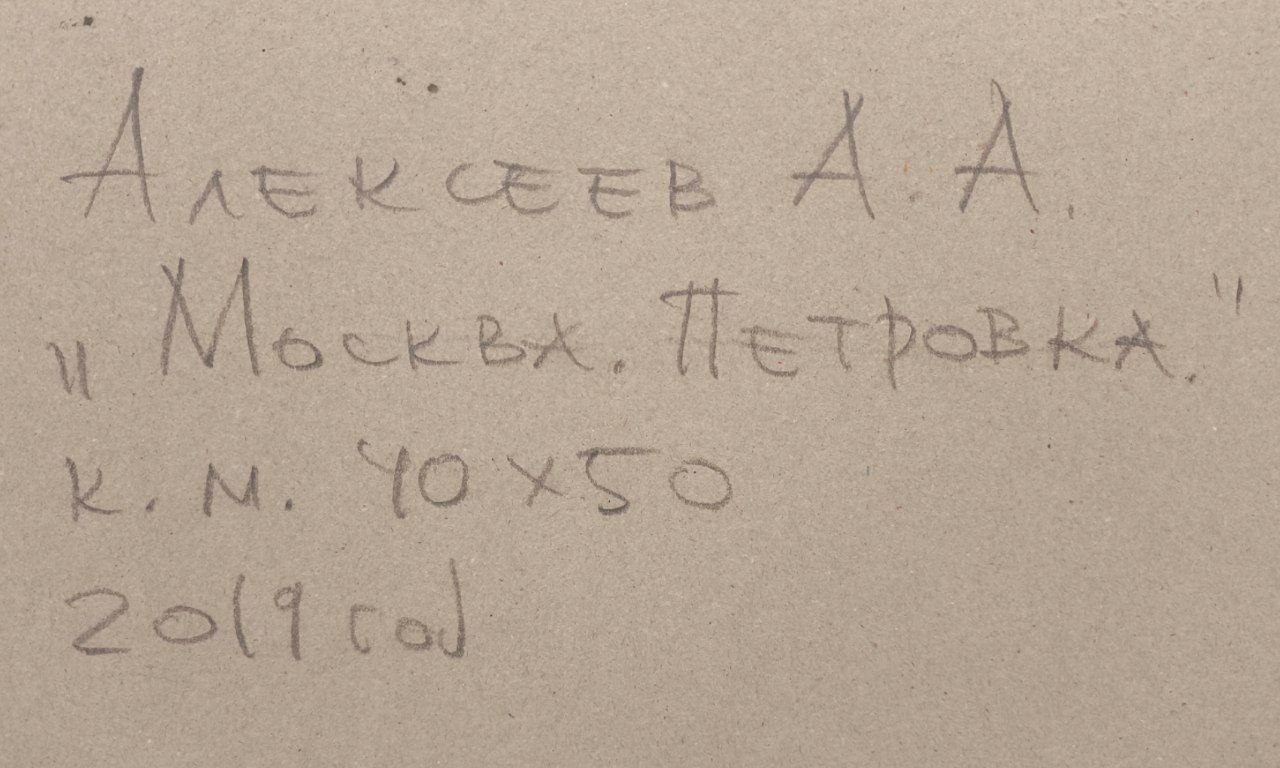 Алексеев А.А.
„Москва. Петровка."
к.м. 40х50
2019 год